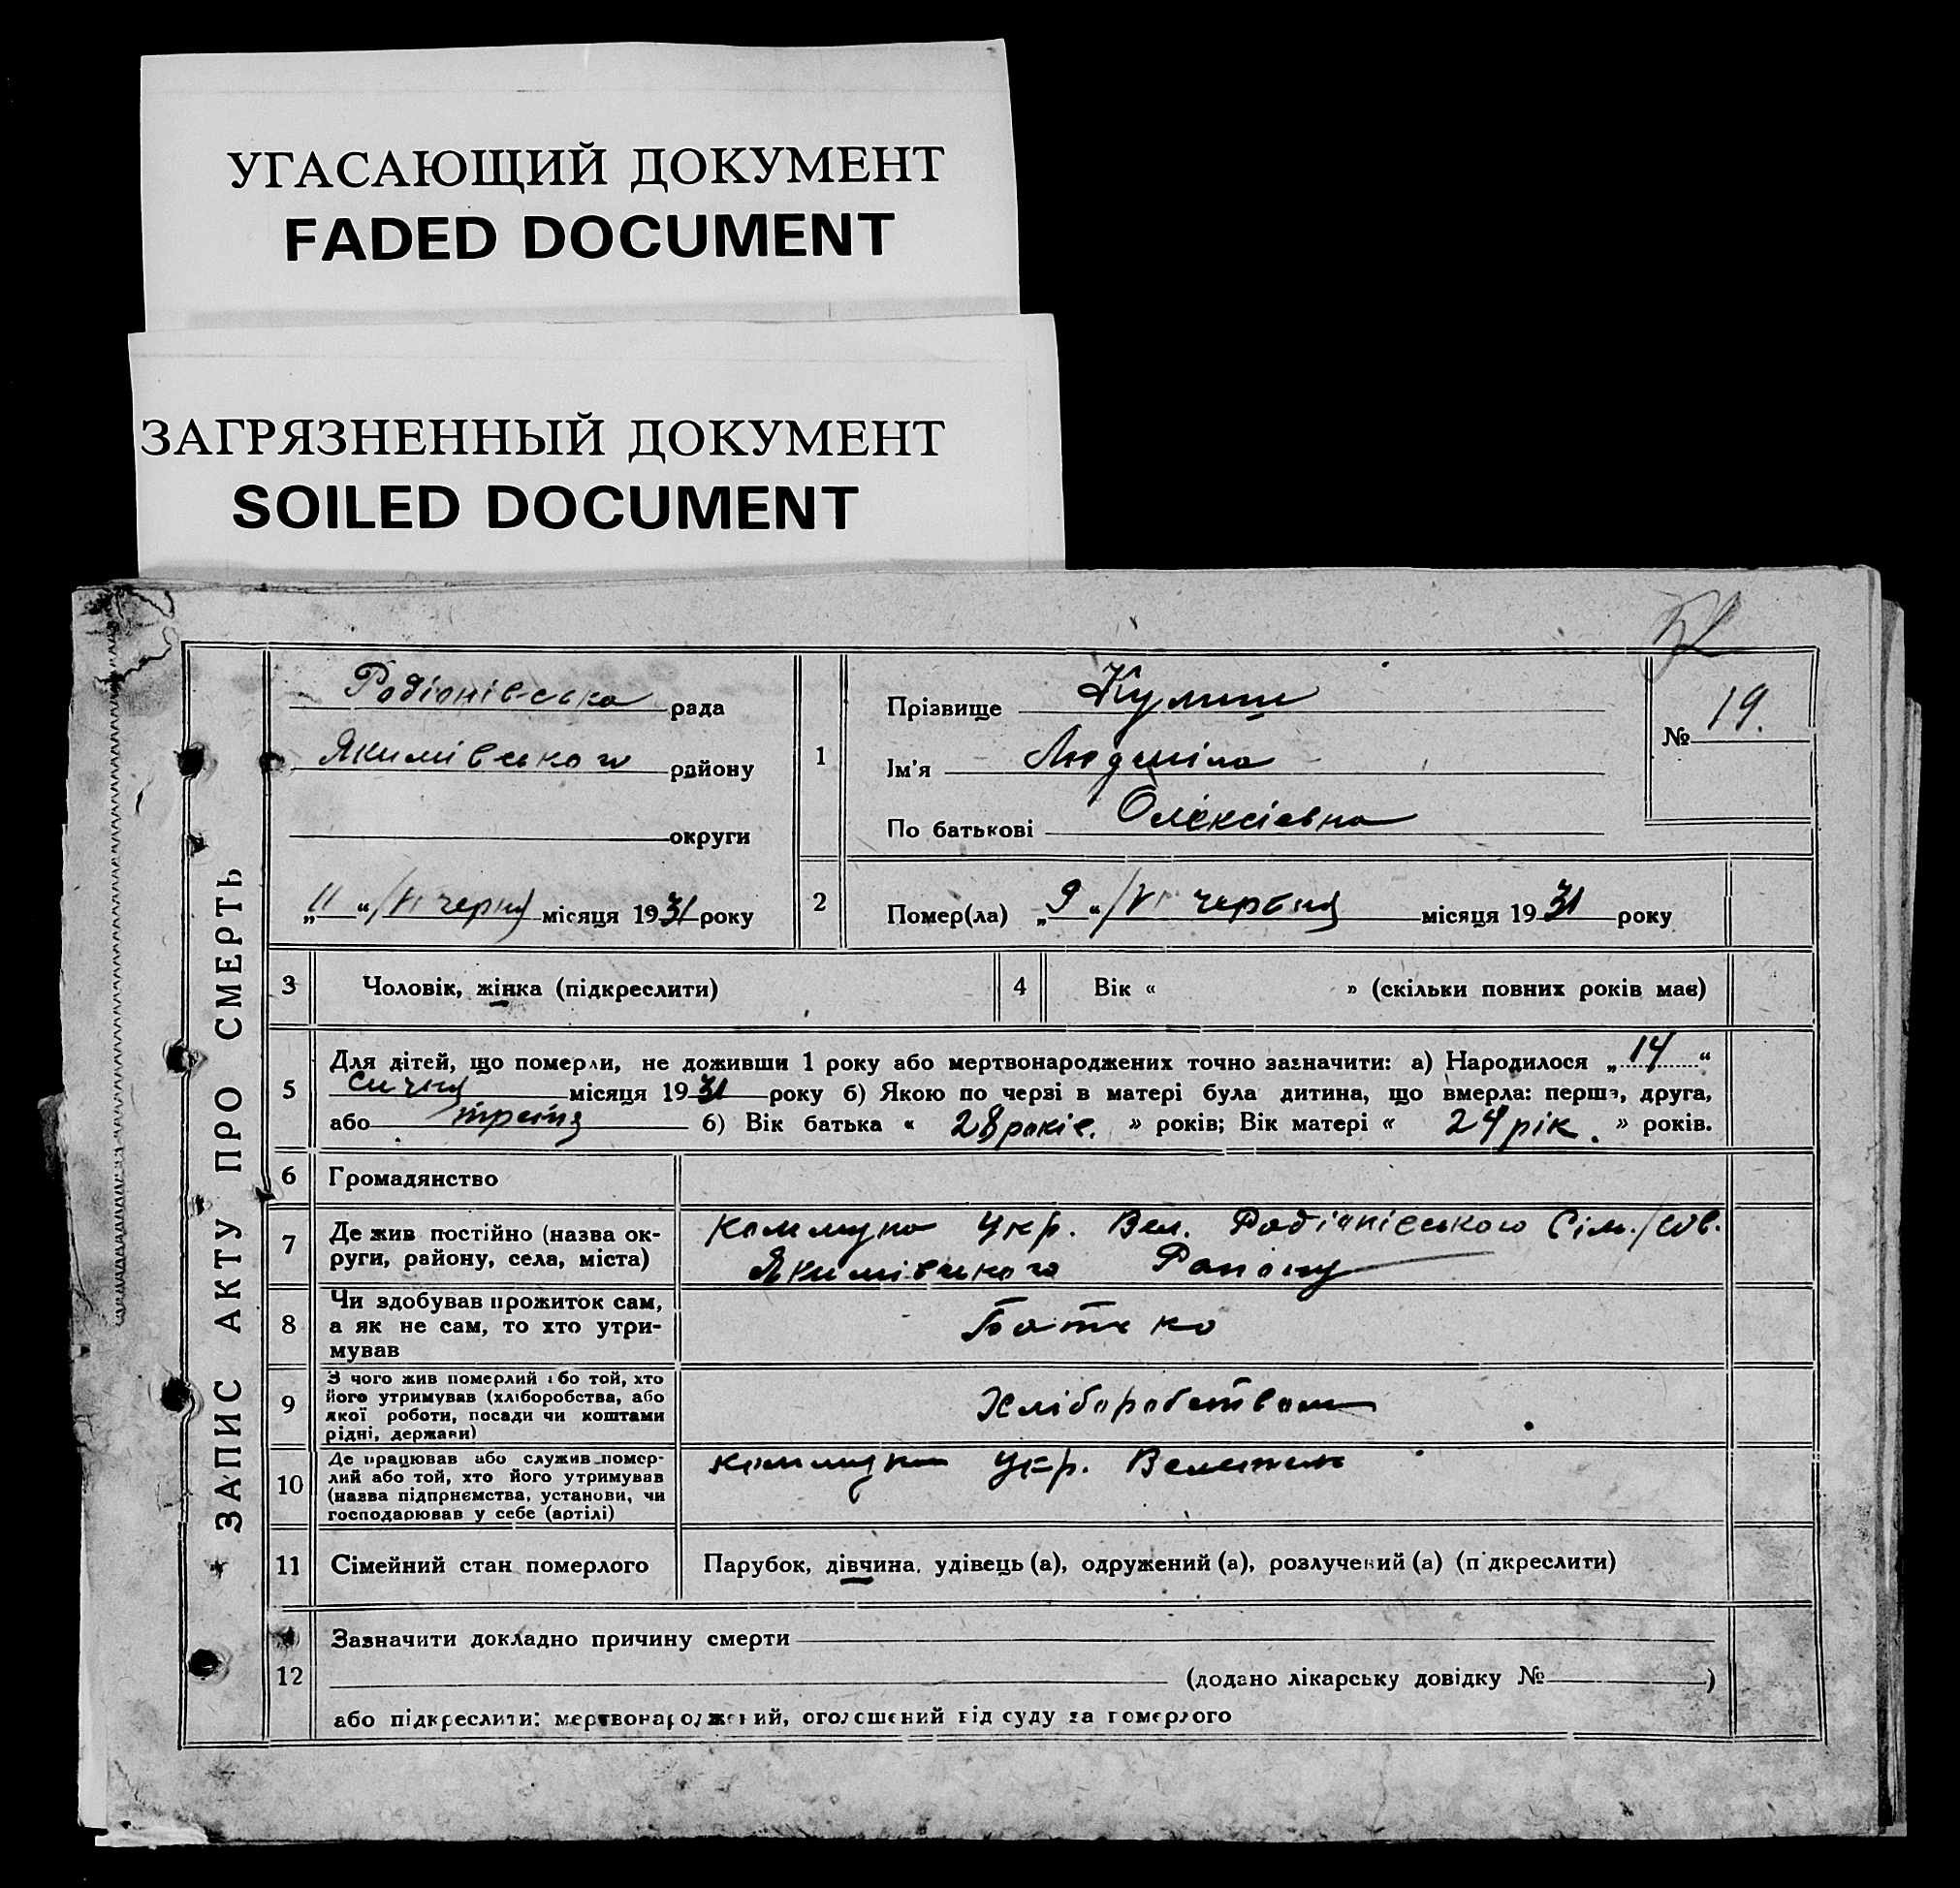 УГАСАЮЩИЙ ДОКУМЕНТ
FADED DOCUMENT
ЗАГРЯЗНЕННЫЙ ДОКУМЕНТ
SOILED DOCUMENT
ЗАПИС АКТУ ПРО СМЕРТЬ
Родіонівська рада
Якимівського району
округи
„11“/VI черня місяця 1931 року
1
Прізвище Кулиш
Ім'я Людміла
По батькові Олексіевна
№ 19.
2
Помер(ла) „9“/VI червня місяця 1931 року
3 Чоловік, жінка (підкреслити)
4 Вік « » (скільки повних років має)
5 Для дітей, що померли, не доживши 1 року або мертвонароджених точно зазначити: а) Народилося „14“
сичня місяця 1931 року б) Якою по черзі в матері була дитина, що вмерла: перша, друга,
або третя б) Вік батька « 28 років. » років; Вік матері « 24 рік. » років.
6 Громадянство
7 Де жив постійно (назва ок-
руги, району, села, міста)
Коммуна Укр. Вел. Родіонівського Сіль/сов.
Якимівського Району
8 Чи здобував прожиток сам,
а як не сам, то хто утри-
мував
Батько
9 З чого жив померлий або той, хто
його утримував (хліборобства, або
якої роботи, посади чи коштами
рідні, держави)
Хліборобством
10 Де працював або служив помер-
лий або той, хто його утримував
(назва підприємства, установи, чи
господарював у себе (артілі)
Коммуна Укр.
11 Сімейний стан померлого Парубок, дівчина, удівець (а), одружений (а), розлучений (а) (підкреслити)
12 Зазначити докладно причину смерти
(додано лікарську довідку № )
або підкреслити: мертвонароджений, оголошений від суду за померлого